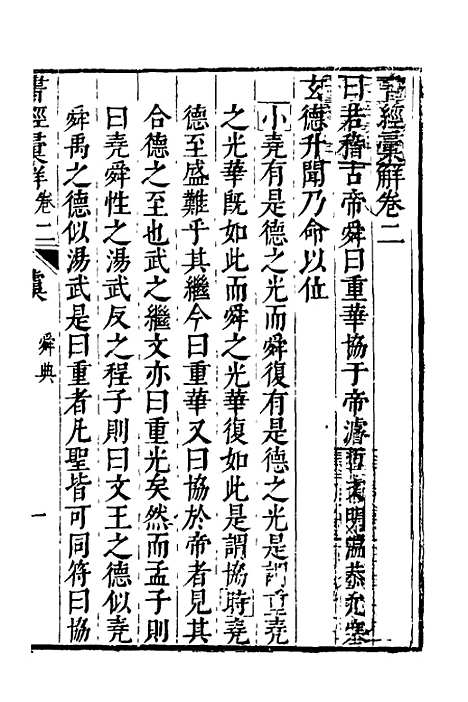 書經彙解卷二
曰若稽古帝舜曰重華協于帝濬哲文明溫恭允塞
玄德升聞乃命以位
小堯有是德之光而舜復有是德之光是謂重堯
之光華既如此而舜之光華復如此是謂協時堯
德至盛難乎其繼今曰重華又曰協於帝者見其
合德之至也武之繼文亦曰重光矣然而孟子則
曰堯舜性之湯武反之程子則曰文王之德似堯
舜禹之德似湯武是曰重者凡聖皆可同符曰協
書經彙解卷二 虞 舜典 一